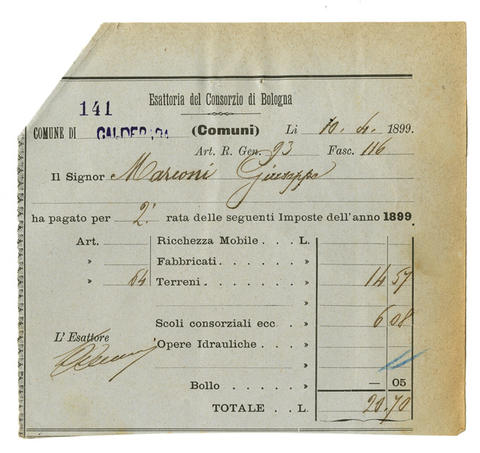 141
Esattoria del Consorzio di Bologna
COMUNE DI CALDERARA (Comuni) Li 10. 4. 1899.
Art. R. Gen. 93 Fasc. 116
Il Signor Marconi Giuseppe
ha pagato per 2ª rata delle seguenti Imposte dell'anno 1899
Art. Ricchezza Mobile . . . L.
» Fabbricati. . . . . . »
» 64 Terreni. . . . . . . » 14 57
Scoli consorziali ecc . . » 6 08
L'Esattore
Opere Idrauliche . . . . »
Bollo . . . . » — 05
TOTALE . . L. 20.70